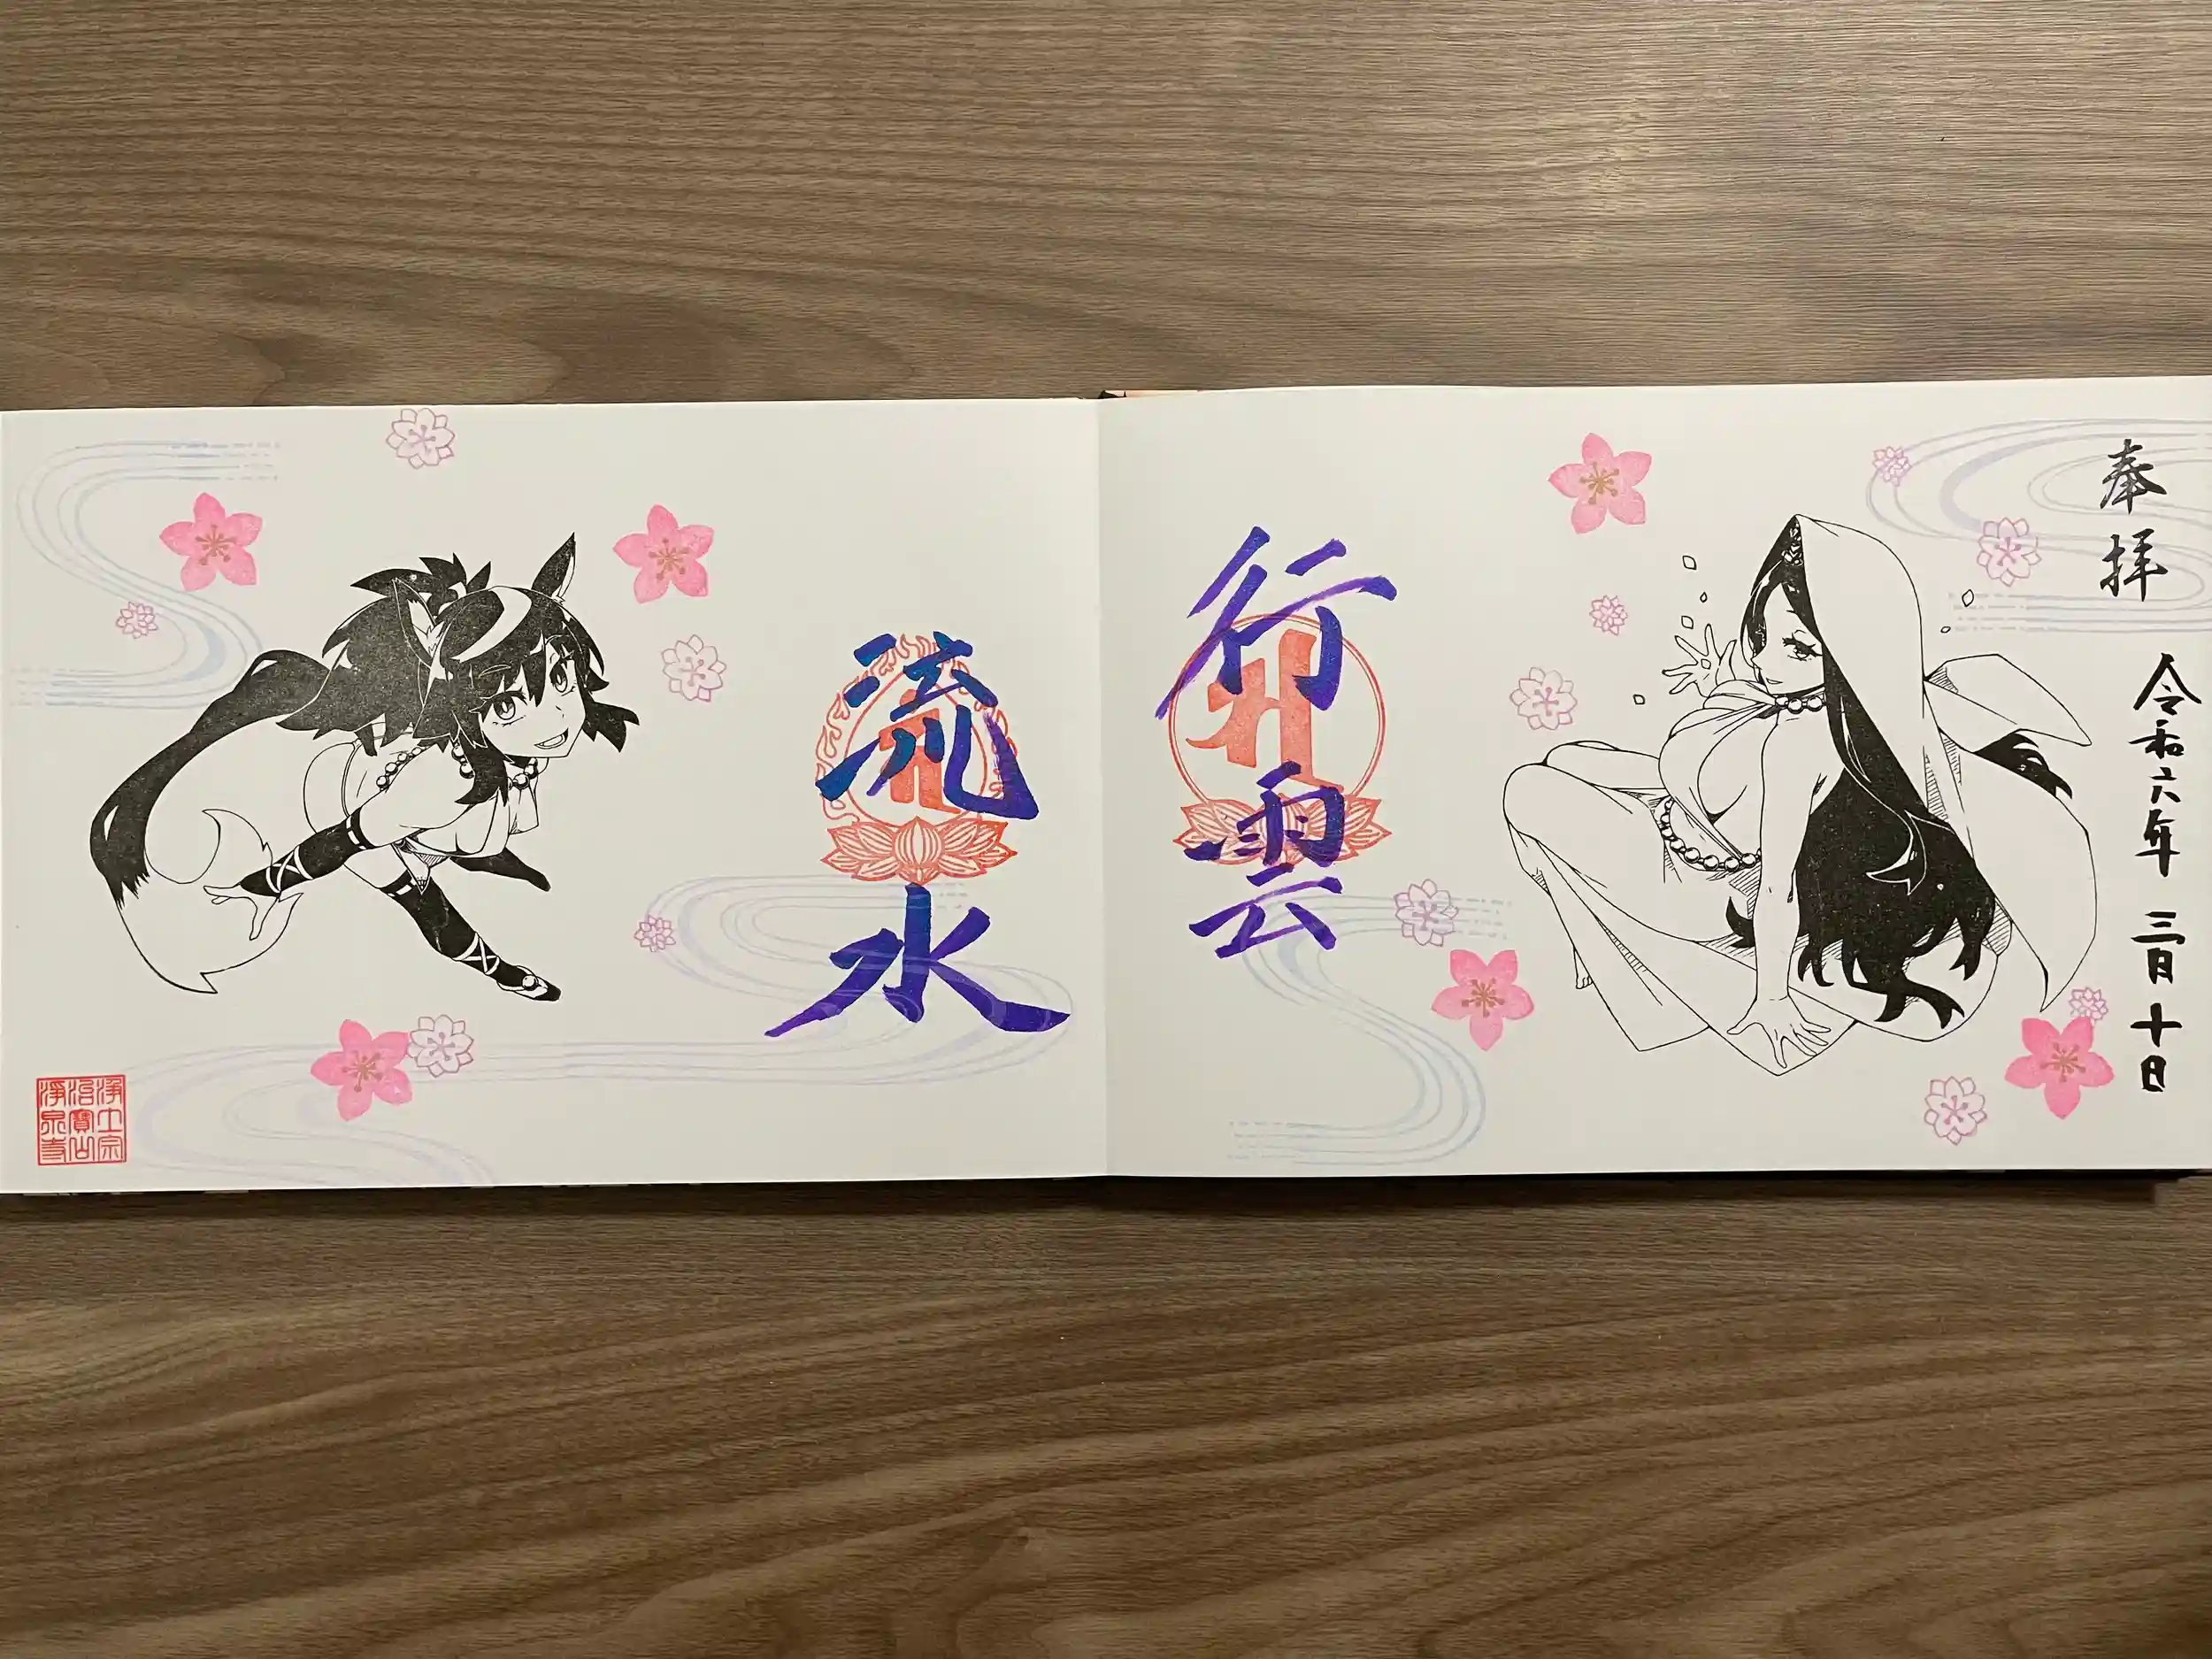 奉拝
令和六年 三月 十日
行雲
流水
浄土宗
治寶山
淨泉寺